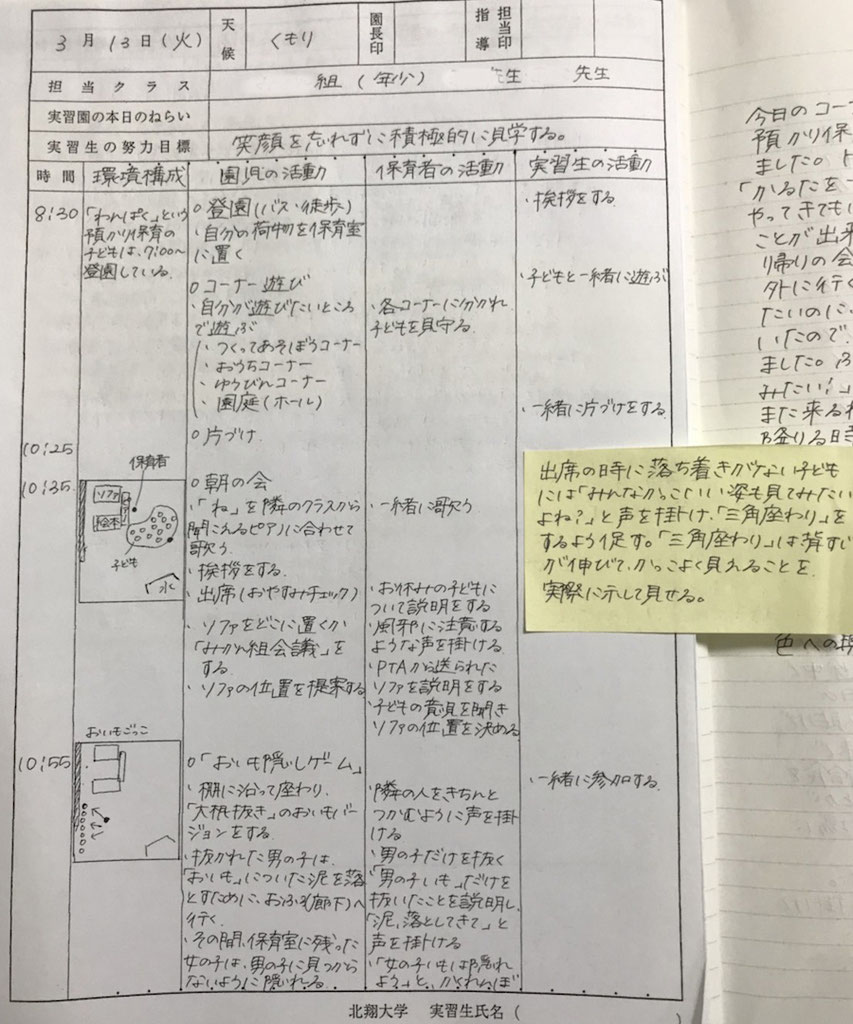 3月13日(火)
天候
くもり
園長印
指導
担当印
担当クラス
組(年少)
先生
先生
実習園の本日のねらい
実習生の努力目標
笑顔を忘れずに積極的に見学する。
時間
環境構成
園児の活動
保育者の活動
実習生の活動
8:30
「わんぱく」という
預かり保育の
子どもは、7:00〜
登園している。
○登園(バス・徒歩)
・自分の荷物を保育室
に置く
○コーナー遊び
・自分が遊びたいところ
で遊ぶ
・つくってあそぼうコーナー
・おうちコーナー
・ゆうびんコーナー
・園庭(ホール)
○片づけ
・各コーナーに分かれ
子どもを見守る。
・挨拶をする
・子どもと一緒に遊ぶ
・一緒に片づけをする。
10:25
10:35
保育者
ソファ
絵本
子ども
水
○朝の会
・「ね」を隣のクラスから
聞こえるピアノに合わせて
歌う
・挨拶をする
・出席(おやすみチェック)
・ソファをどこに置くか
「みかん組会議」を
する
・ソファの位置を提案する
・一緒に歌う
・お休みの子どもに
ついて説明をする
・風邪に注意する
ような声を掛ける
・PTAから送られた
ソファを説明をする
・子どもの意見を聞き
ソファの位置を決める
10:55
おいもごっこ
○「おいも隠しゲーム」
・棚に沿って座わり、
「大根抜き」のおいもバー
ジョンをする
・抜かれた男の子は、
「おいも」についた泥を落
とすために、おふろ(廊下)へ
行く
・その間、保育室に残った
女の子は、男の子に見つから
ないように隠れる
・隣の人をきちんと
つかむように声を掛
ける
・男の子だけを抜く
・「男の子いも」だけを
抜いたことを説明し、
「泥、落としてきて」と
声を掛ける
・「女の子いもは隠れ
よう」と、かくれんぼ
・一緒に参加する。
出席の時に落ち着きがない子ども
には「みんなかっこいい姿も見てみたい
よね?」と声を掛け、「三角座わり」を
するよう促す。「三角座わり」は背すじ
が伸びて、かっこよく見えることを
実際に示して見せる。
北翔大学 実習生氏名( )
今日のコー
預かり保
ました。
「かるたを
やってきても
ことが出来
り帰りの会
外に行く
たいのに
いたので、
ました。
みたい!」
また来るね
降りる時
色への